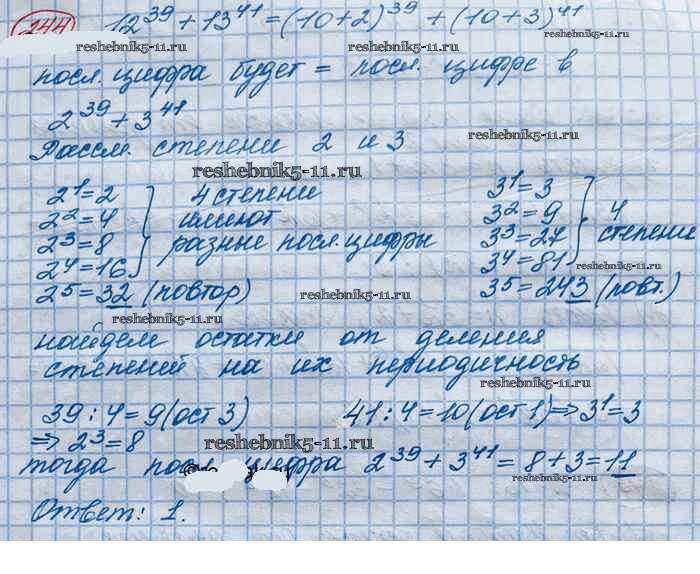 244 12^39 + 13^41 = (10+2)^39 + (10+3)^41
reshebnik5-11.ru reshebnik5-11.ru
посл. цифра будет = посл. цифре в
2^39 + 3^41
reshebnik5-11.ru
Рассм. степени 2 и 3
reshebnik5-11.ru
2^1 = 2 4 степени 3^1 = 3
2^2 = 4 имеют 3^2 = 9 4
2^3 = 8 разные посл. цифры 3^3 = 27 степени
2^4 = 16 3^4 = 81
reshebnik5-11.ru
2^5 = 32 (повтор) 3^5 = 243 (повт.)
reshebnik5-11.ru
reshebnik5-11.ru
найдем остатки от деления
степеней на их периодичность
reshebnik5-11.ru
39 : 4 = 9 (ост 3) 41 : 4 = 10 (ост 1) ⇒ 3^1 = 3
⇒ 2^3 = 8
reshebnik5-11.ru
тогда посл цифра 2^39 + 3^41 = 8 + 3 = 11
reshebnik5-11.ru
Ответ: 1.